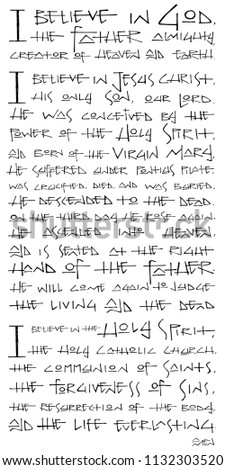 I BELIEVE IN GOD,
THE FATHER ALMIGHTY,
CREATOR OF HEAVEN AND EARTH.
I BELIEVE IN JESUS CHRIST,
HIS ONLY SON, OUR LORD.
HE WAS CONCEIVED BY THE
POWER OF THE HOLY SPIRIT,
AND BORN OF THE VIRGIN MARY.
HE SUFFERED UNDER PONTIUS PILATE,
WAS CRUCIFIED, DIED, AND WAS BURIED.
HE DESCENDED TO THE DEAD.
ON THE THIRD DAY HE ROSE AGAIN.
HE ASCENDED INTO HEAVEN,
AND IS SEATED AT THE RIGHT
HAND OF THE FATHER.
HE WILL COME AGAIN TO JUDGE
THE LIVING AND THE DEAD
I BELIEVE IN THE HOLY SPIRIT,
THE HOLY CATHOLIC CHURCH,
THE COMMUNION OF SAINTS,
THE FORGIVENESS OF SINS,
THE RESURRECTION OF THE BODY,
AND THE LIFE EVERLASTING.
AMEN
shutterstock
shutterstock.com • 1132303520